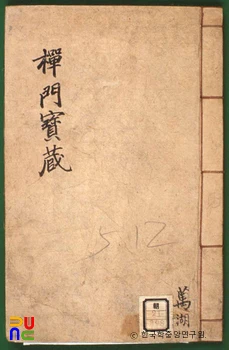 禪門寶蔵
5.12
萬湖
© 한국학중앙연구원